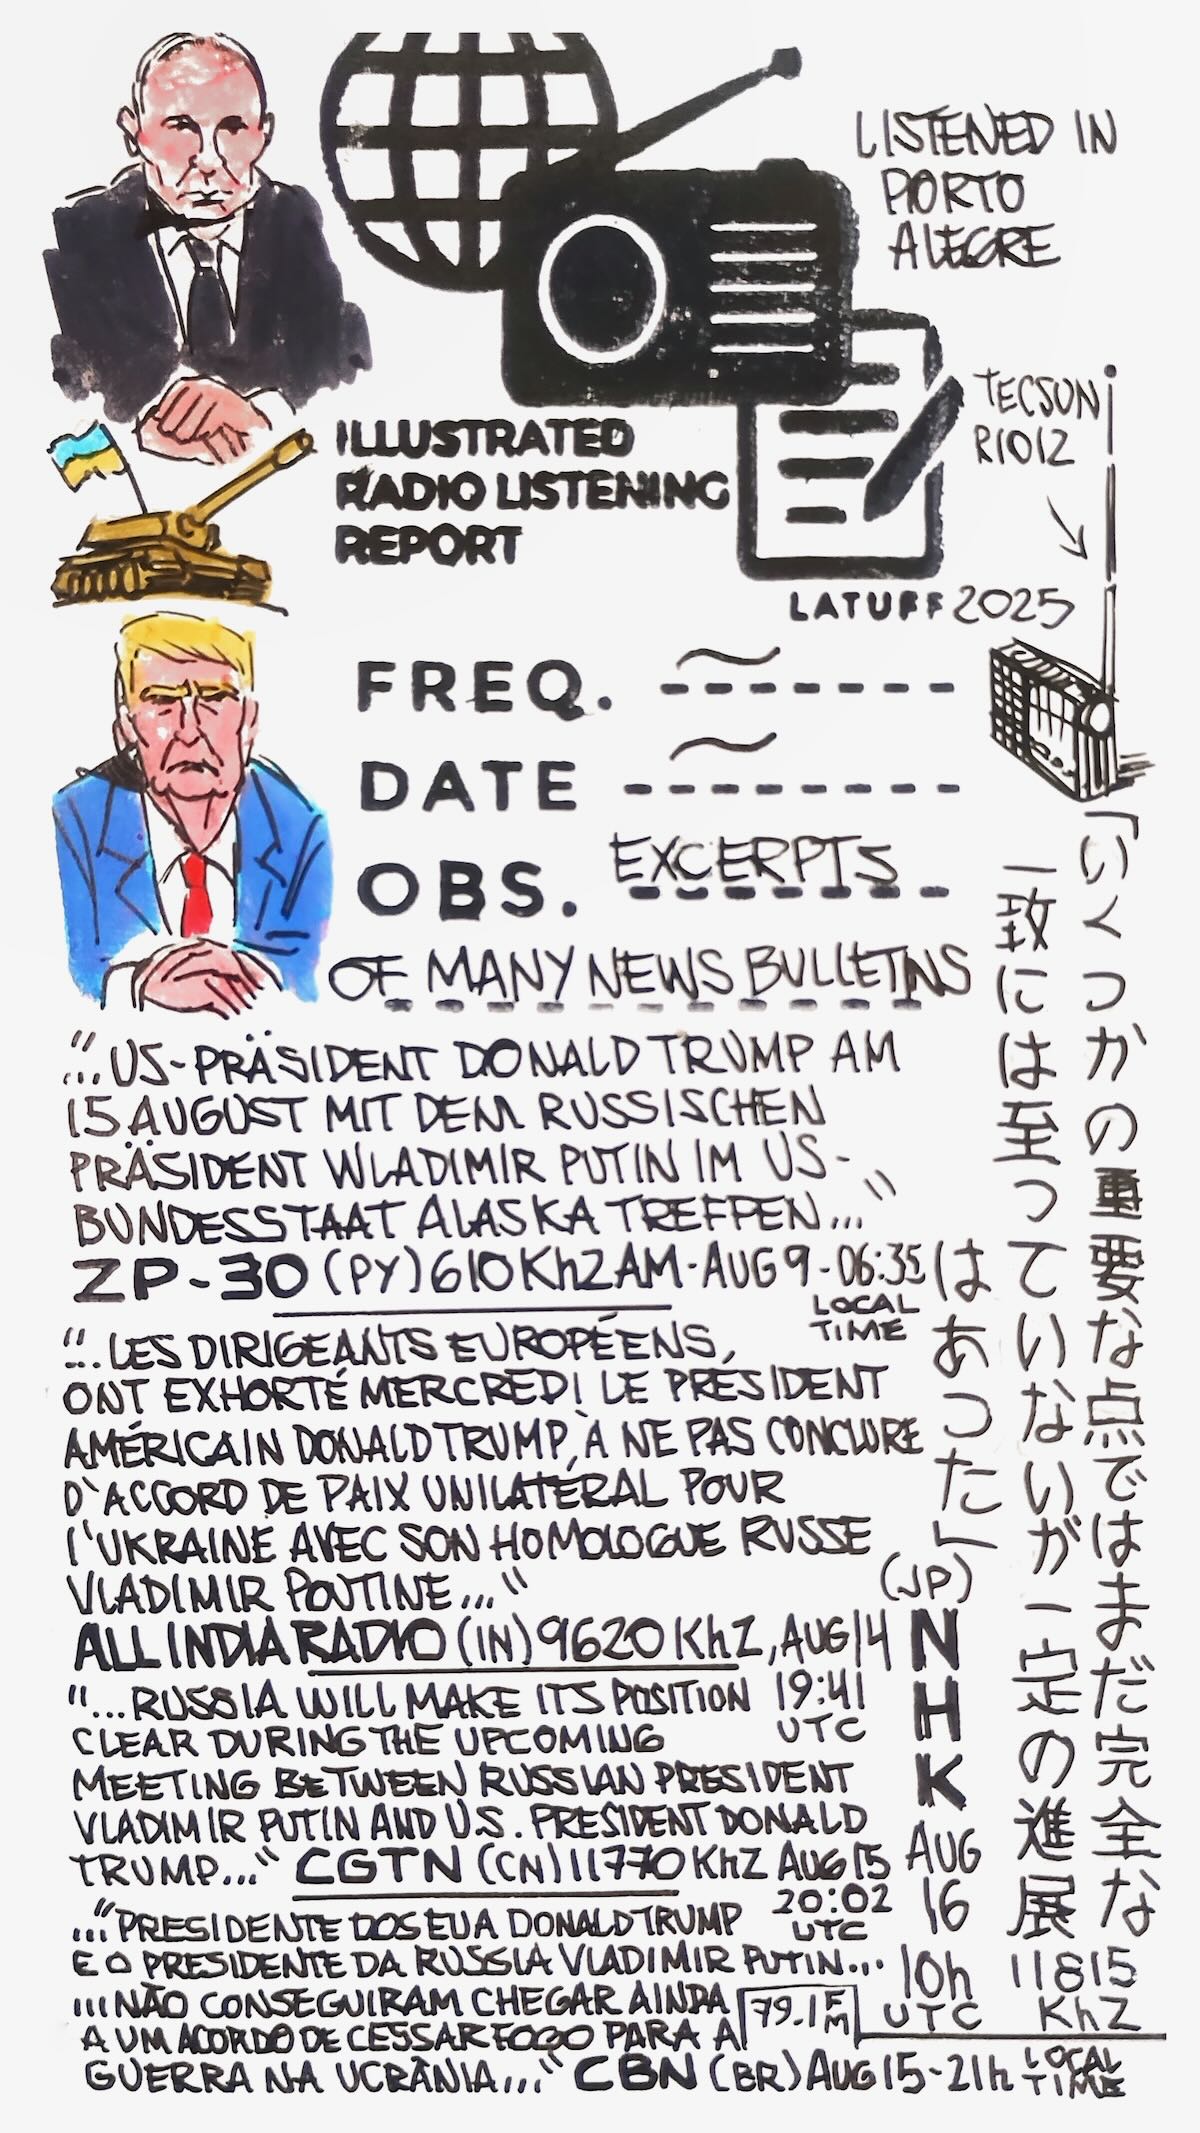 LISTENED IN
PORTO
ALEGRE
TECSUN
R1012
ILLUSTRATED
RADIO LISTENING
REPORT
LATUFF 2025
FREQ. ~
DATE ~
OBS. EXCERPTS
OF MANY NEWS BULLETINS
"...US-PRÄSIDENT DONALD TRUMP AM
15 AUGUST MIT DEM RUSSISCHEN
PRÄSIDENT WLADIMIR PUTIN IM US-
BUNDESSTAAT ALASKA TREFFEN..."
ZP-30 (PY) 610 KhZ AM-AUG 9-06:35
LOCAL
TIME
"...LES DIRIGEANTS EUROPÉENS,
ONT EXHORTÉ MERCREDI LE PRÉSIDENT
AMÉRICAIN DONALD TRUMP, À NE PAS CONCLURE
D'ACCORD DE PAIX UNILATÉRAL POUR
l'UKRAINE AVEC SON HOMOLOGUE RUSSE
VLADIMIR POUTINE..."
ALL INDIA RADIO (IN) 9620 KhZ, AUG 14
19:41
UTC
"...RUSSIA WILL MAKE ITS POSITION
CLEAR DURING THE UPCOMING
MEETING BETWEEN RUSSIAN PRESIDENT
VLADIMIR PUTIN AND U.S. PRESIDENT DONALD
TRUMP..." CGTN (CN) 11770 KhZ AUG 15
20:02
UTC
..."PRESIDENTE DOS EUA DONALD TRUMP
E O PRESIDENTE DA RUSSIA VLADIMIR PUTIN...
...NÃO CONSEGUIRAM CHEGAR AINDA
A UM ACORDO DE CESSAR FOGO PARA A
GUERRA NA UCRÂNIA..." CBN (BR) AUG 15-21h LOCAL TIME
79.1 FM
「いくつかの重要な点ではまだ完全な
一致には至っていないが一定の進展
はあった」
(JP)
NHK
AUG
16
10h
UTC
11815
KhZ